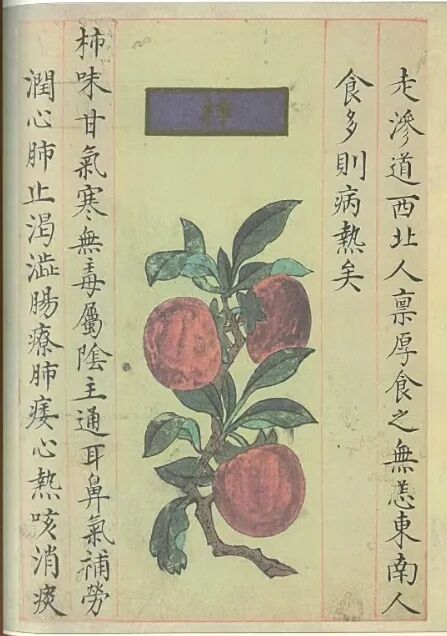 走滲道西北人禀厚食之無恙東南人
食多則病熱矣
柿
柿味甘氣寒無毒屬陰主通耳鼻氣補勞
潤心肺止渴澁腸療肺痿心熱咳消痰